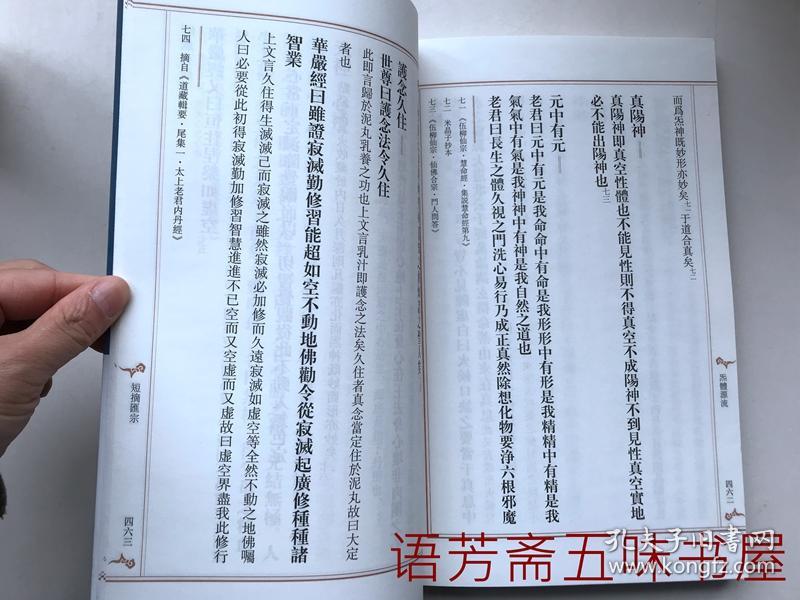 而爲炁神既妙形亦妙矣七一于道合真矣七二
真陽神——
真陽神即真空性體也不能見性則不得真空不成陽神不到見性真空實地
必不能出陽神也七三
元中有元——
老君曰元中有元是我命命中有命是我形形中有形是我精精中有精是我
氣氣中有氣是我神神中有神是我自然之道也
老君曰長生之體久視之門洗心易行乃成正真然除想化物要浄六根邪魔
七一 《伍柳仙宗·慧命經·集説慧命經第九》
七二 米晶子抄本
七三 《伍柳仙宗·仙佛合宗·門人問答》
炁體源流
四六二
護念久住——
世尊曰護念法令久住
此即言歸於泥丸乳養之功也上文言乳汁即護念之法矣久住者真念當定住於泥丸故曰大定
者也
華嚴經曰雖證寂滅勤修習能超如空不動地佛勸令從寂滅起廣修種種諸
智業
上文言久住得生滅滅已而寂滅之雖然寂滅必加修而久遠寂滅如虛空等全然不動之地佛囑
人曰必要從此初得寂滅勤加修習智慧進進不已空而又空虛而又虛故曰虛空界盡我此修行
七四 摘自《道藏輯要·尾集一·太上老君内丹經》
短摘匯宗
四六三
语芳斋五味书屋
孔夫子旧书网